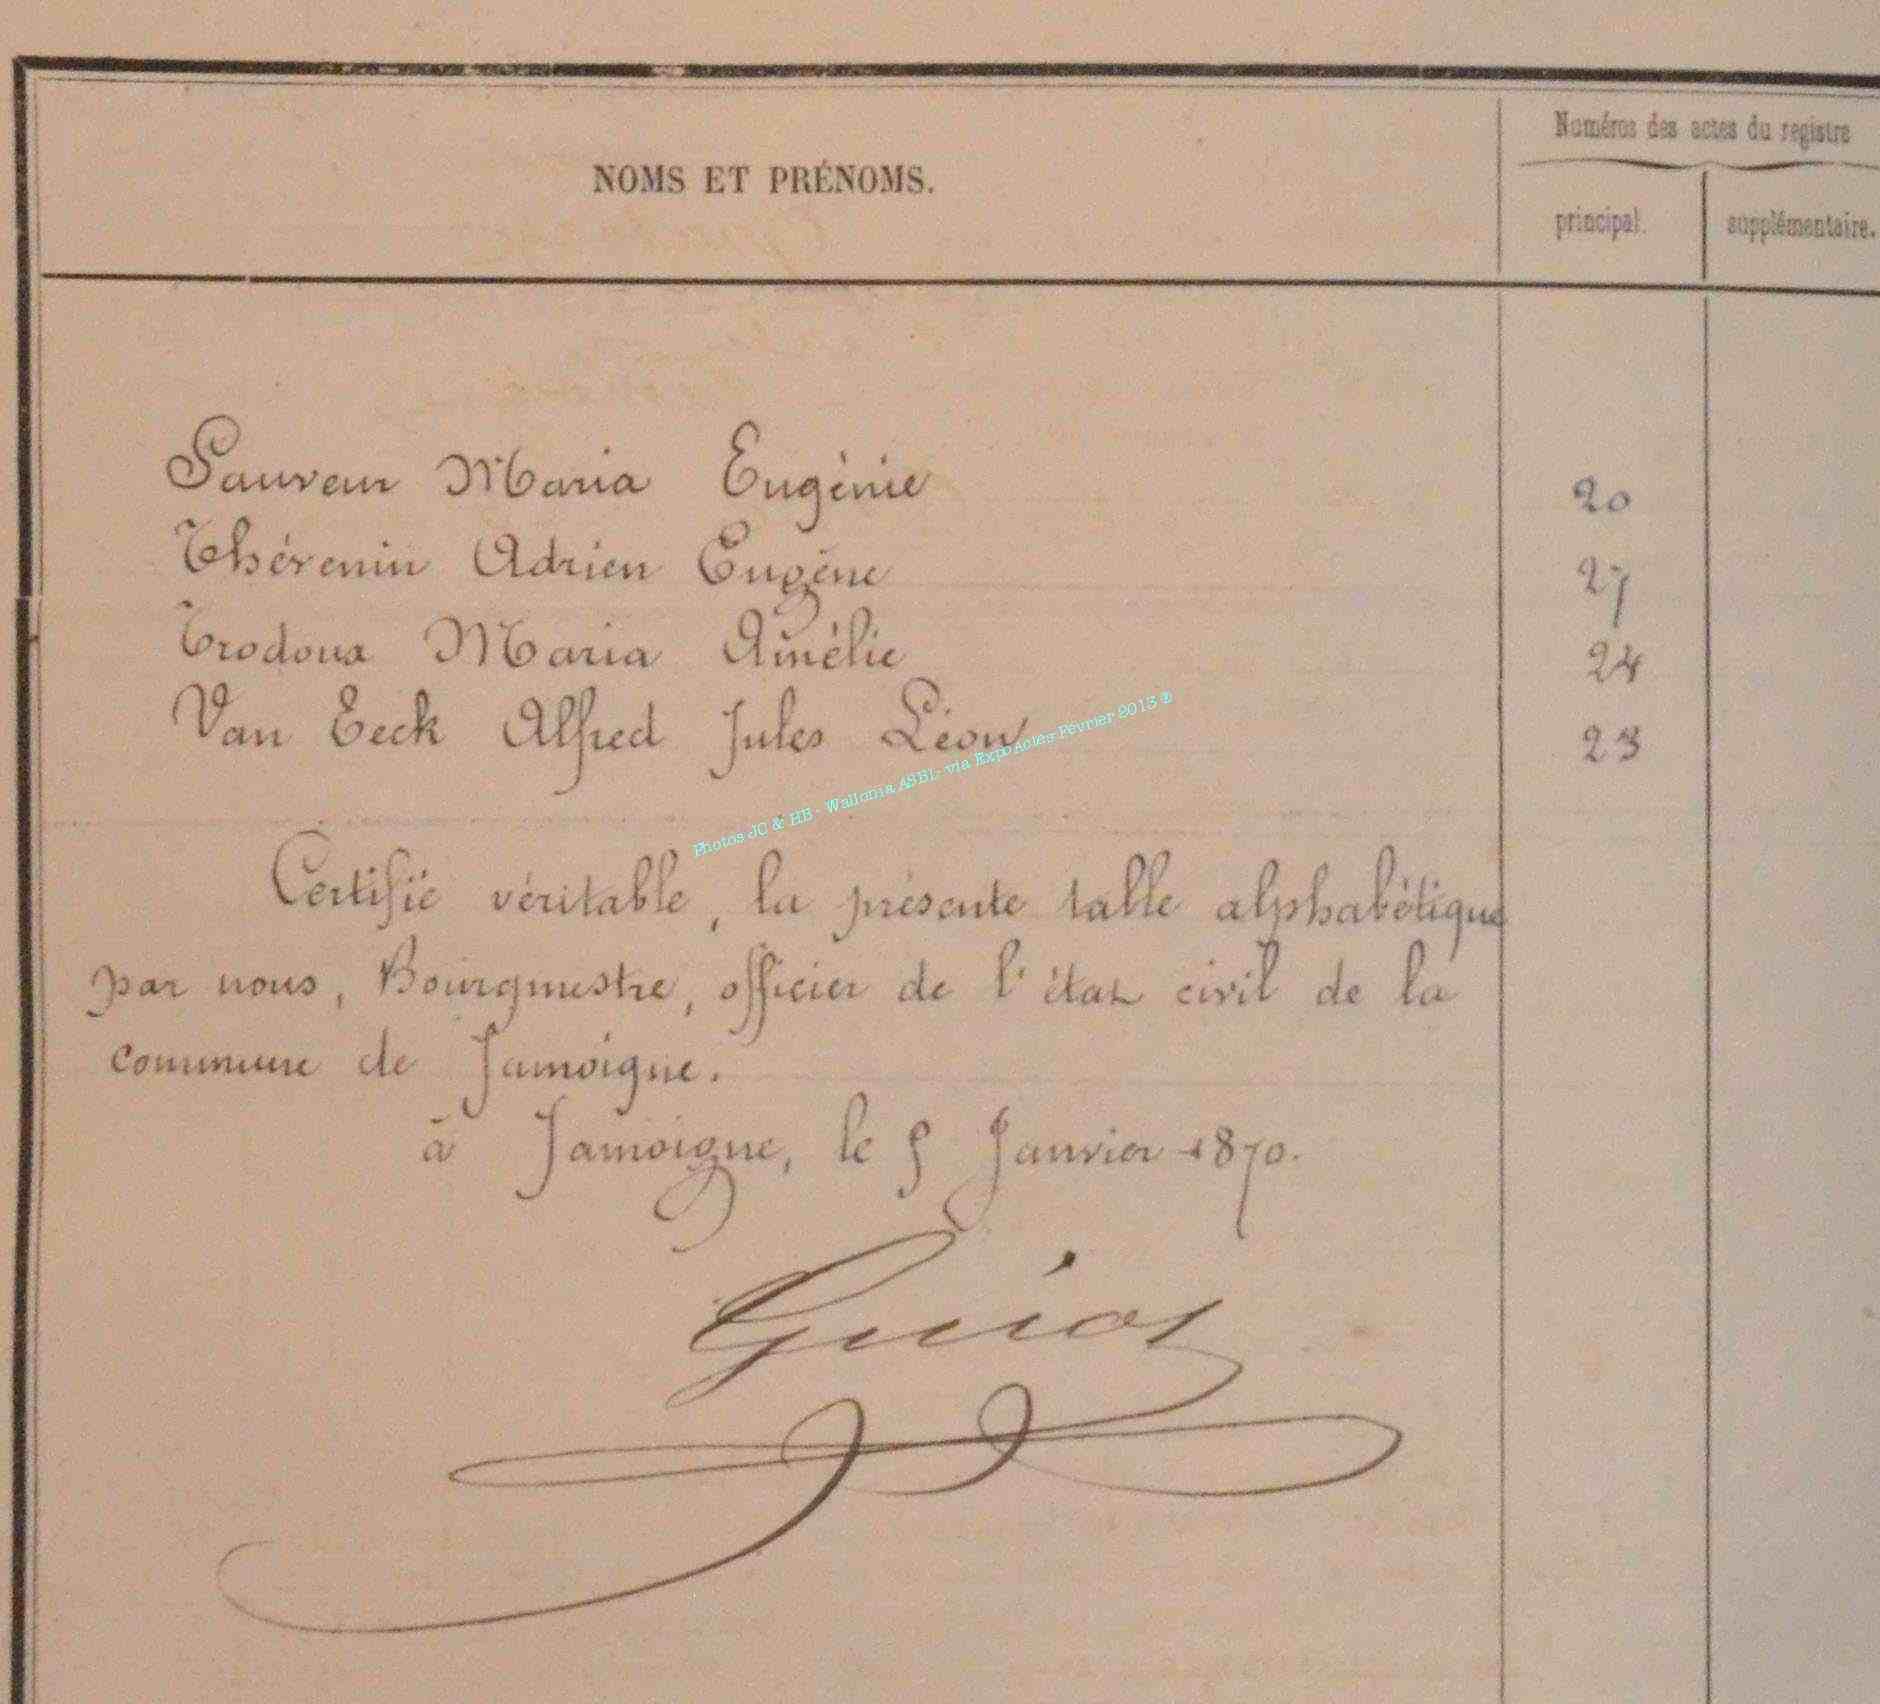 NOMS ET PRÉNOMS.
Numéros des actes du registre
principal.
supplémentaire.
Sauveur Maria Eugénie 20
Thévenin Adrien Eugène 27
Trodoux Maria Amélie 24
Van Eeck Alfred Jules Léon 23
Photos JC & HB - Wallonia ASBL- via ExpoActes Février 2013 ®
Certifié véritable, la présente table alphabétique
par nous, Bourgmestre, officier de l'état civil de la
commune de Jamoigne.
à Jamoigne, le 5 Janvier 1870.
Guiot